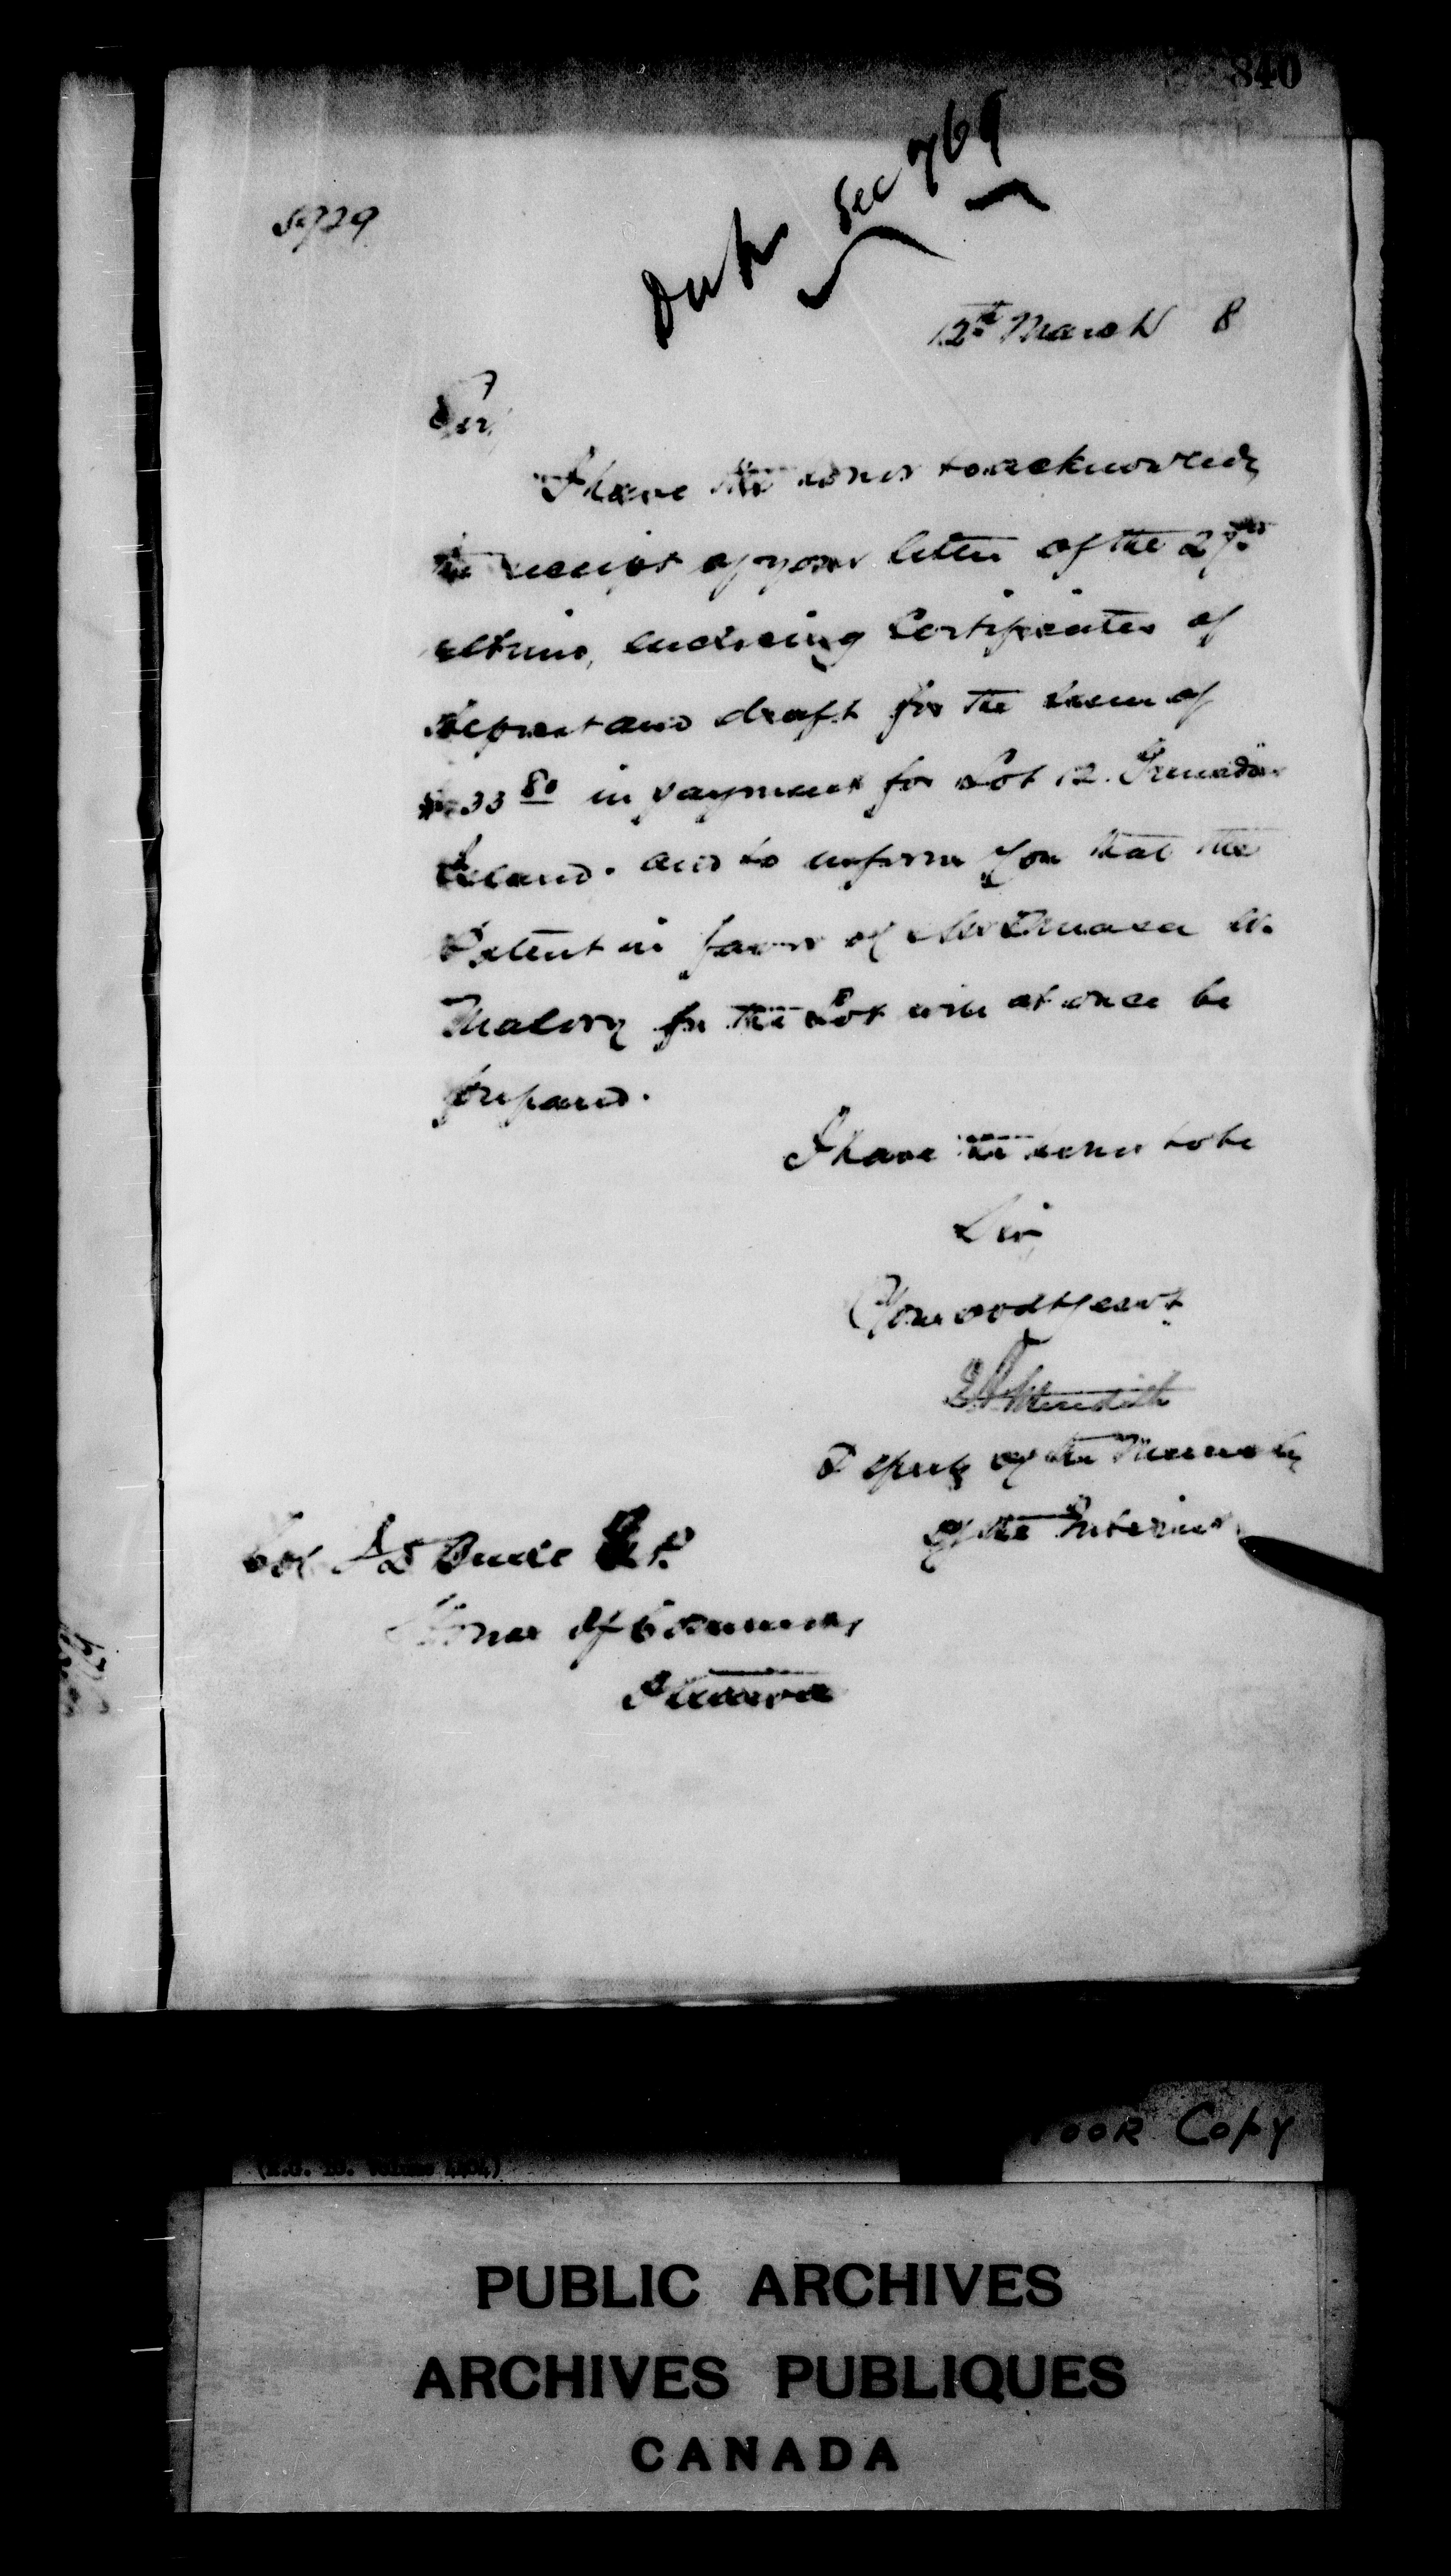 840
5929
See 769
12th March 8
Sir,
I have the honor to acknowledge
the receipt of your letter of the 27th
ultimo, enclosing Certificates of
deposit and draft for the sum of
$33 80 in payment for Lot 12. Grenadier
Island. and to inform you that the
Patent in favor of W.
Malory for the Lot will at once be
prepared.
I have the honor to be
Sir
Your obdt servt
EA Meredith
Deputy of the Minister
of the Interior
Col
House of Commons
Ottawa
POOR COPY
PUBLIC ARCHIVES
ARCHIVES PUBLIQUES
CANADA